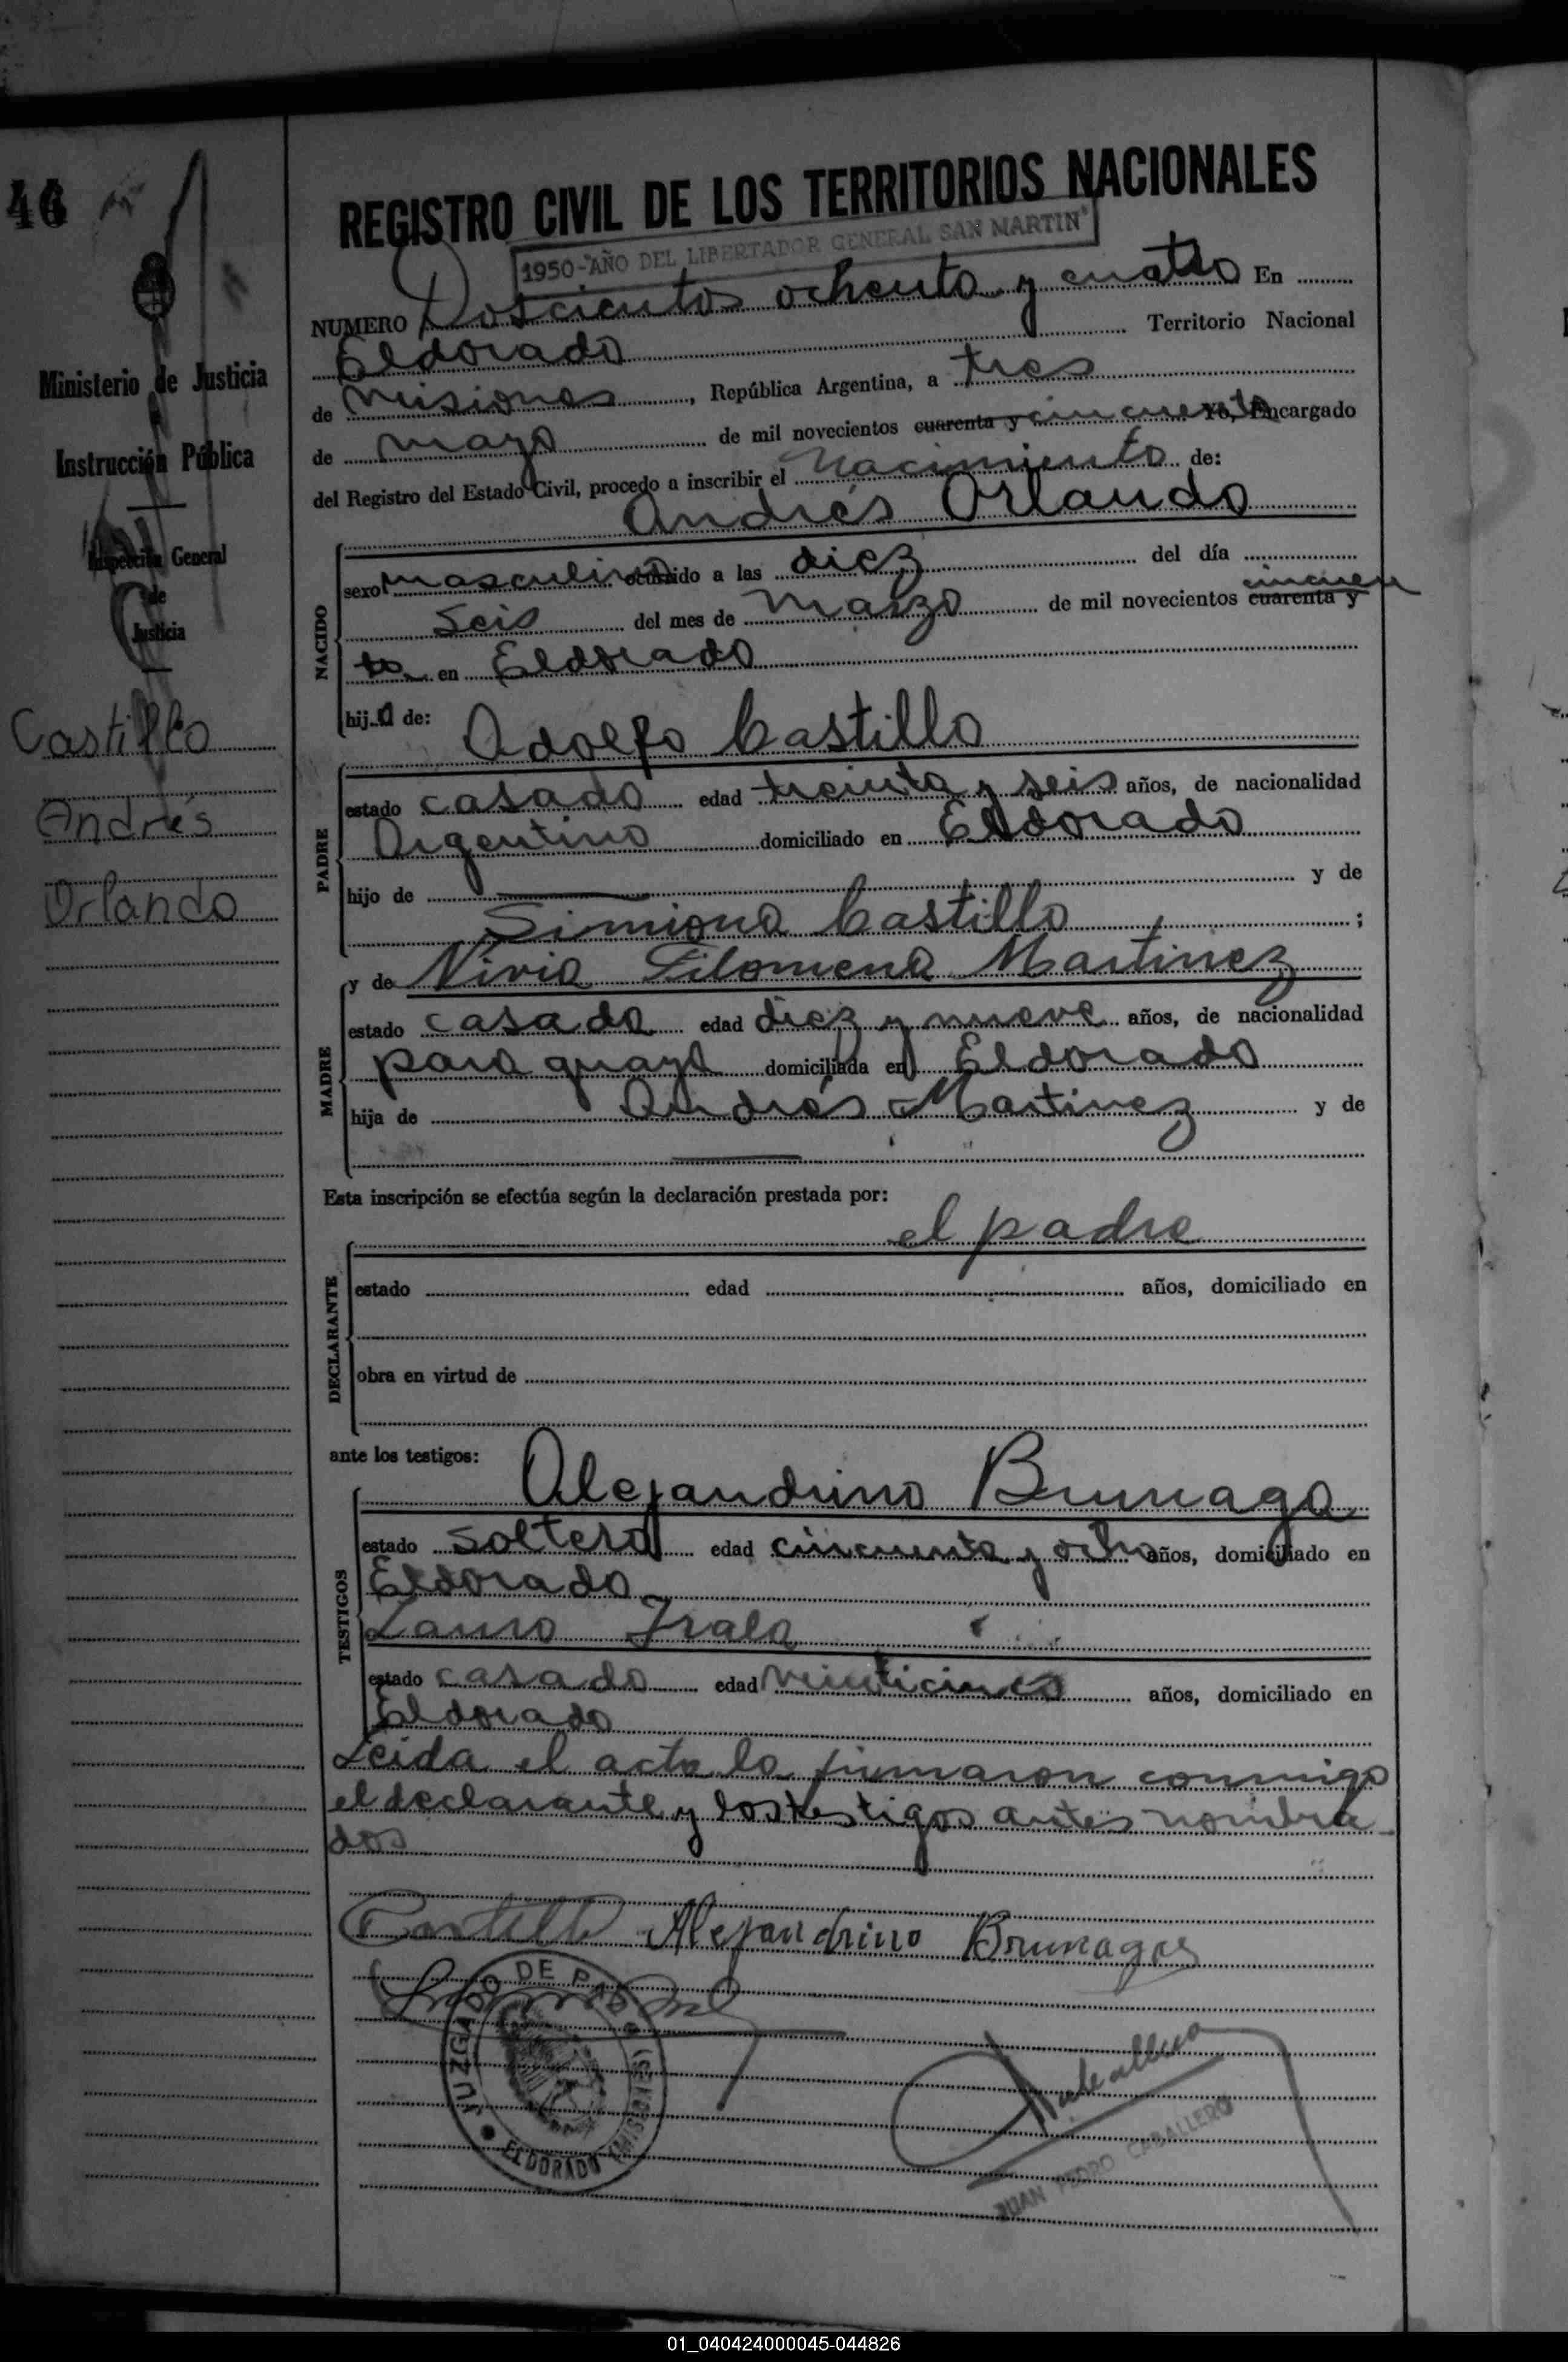 46
Ministerio de Justicia
Instrucción Pública
Inspección General
de
Justicia
Castillo
Andrés
Orlando
REGISTRO CIVIL DE LOS TERRITORIOS NACIONALES
1950-"AÑO DEL LIBERTADOR GENERAL SAN MARTIN"
NUMERO Doscientos ochenta y cuatro En
Eldorado Territorio Nacional
de Misiones, República Argentina, a tres
de mayo de mil novecientos cuarenta y cincuenta Yo, Encargado
del Registro del Estado Civil, procedo a inscribir el Nacimiento de:
Andrés Orlando
NACIDO
sexo masculino ocurrido a las diez del día
seis del mes de marzo de mil novecientos cuarenta y cincuen
ta en Eldorado
hijo de: Adolfo Castillo
PADRE
estado casado edad treinta y seis años, de nacionalidad
Argentino domiciliado en Eldorado
hijo de y de
Simiona Castillo ;
y de Nivia Filomena Martinez
MADRE
estado casada edad diez y nueve años, de nacionalidad
paraguaya domiciliada en Eldorado
hija de Andrés Martinez y de
Esta inscripción se efectúa según la declaración prestada por:
el padre
DECLARANTE
estado edad años, domiciliado en
obra en virtud de
ante los testigos:
Alejandrino Brunaga
TESTIGOS
estado soltero edad cincuenta y ocho años, domiciliado en
Eldorado
Lauro Irala
estado casado edad veinticinco años, domiciliado en
Eldorado
Leida el acta la firmaron conmigo
el declarante y los testigos antes nombra
dos
Castillo Alejandrino Brunagas
JUZGADO DE PAZ
ELDORADO (MISIONES)
JUAN PEDRO CABALLERO
01_040424000045-044826